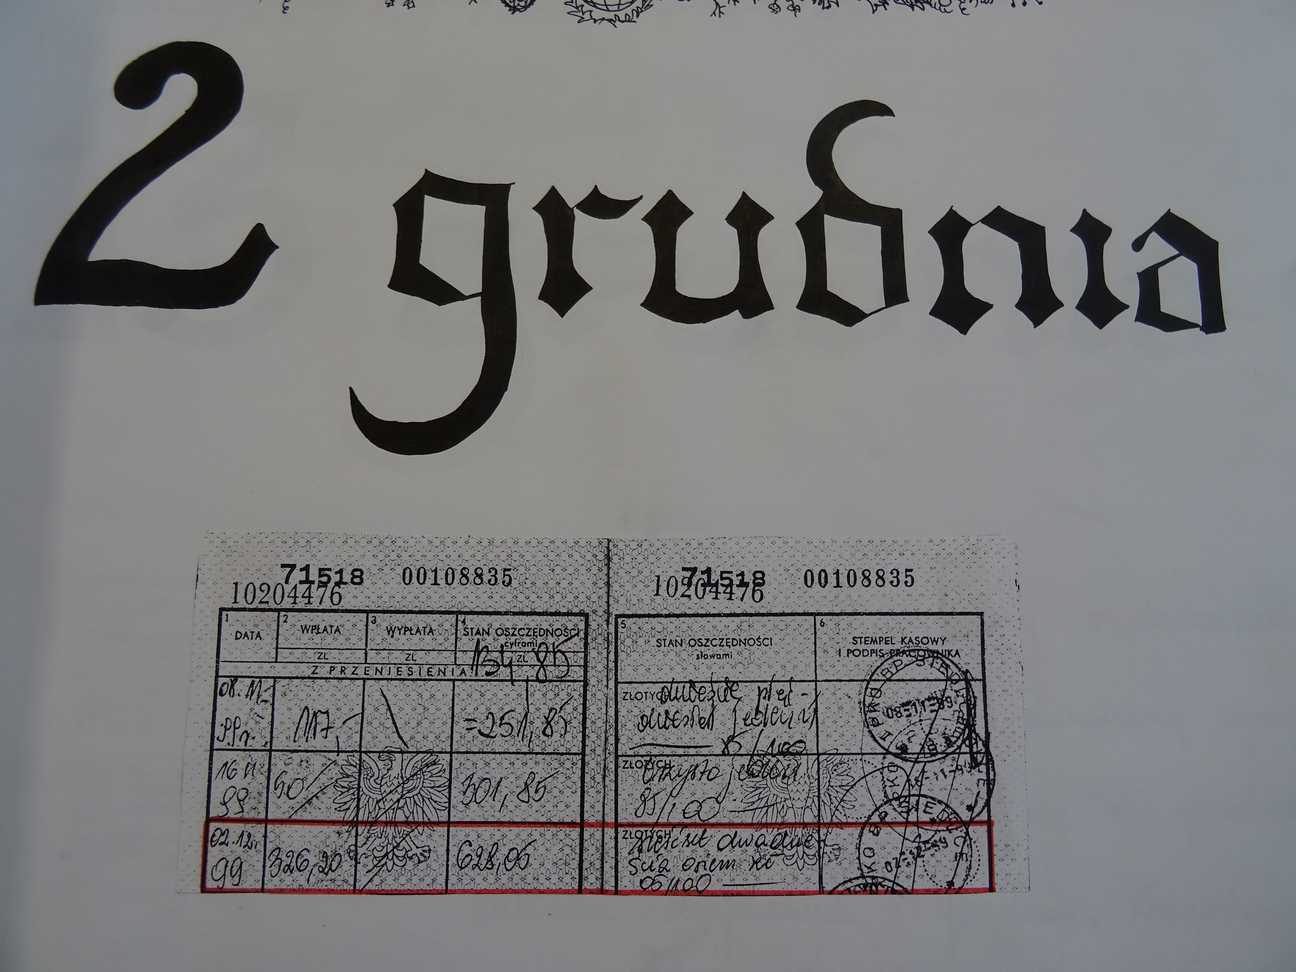 2 grudnia
71518 00108835
10204476
71518 00108835
10204476
1 DATA 2 WPŁATA 3 WYPŁATA 4 STAN OSZCZĘDNOŚCI
cyframi
ZŁ ZŁ ZŁ
Z PRZENIESIENIA 134,85
5 STAN OSZCZĘDNOŚCI 6 STEMPEL KASOWY
słowami I PODPIS PRACOWNIKA
08.11- 117,- =251,85
ZŁOTYCH dwieście pięć-
dziesiąt jeden zł
85/100
16 11 50 301,85
99
ZŁOTYCH trzysta jeden
85/100
02.12. 326,20 628,05
99
ZŁOTYCH sześćset dwadzie-
ścia osiem zł
05/100